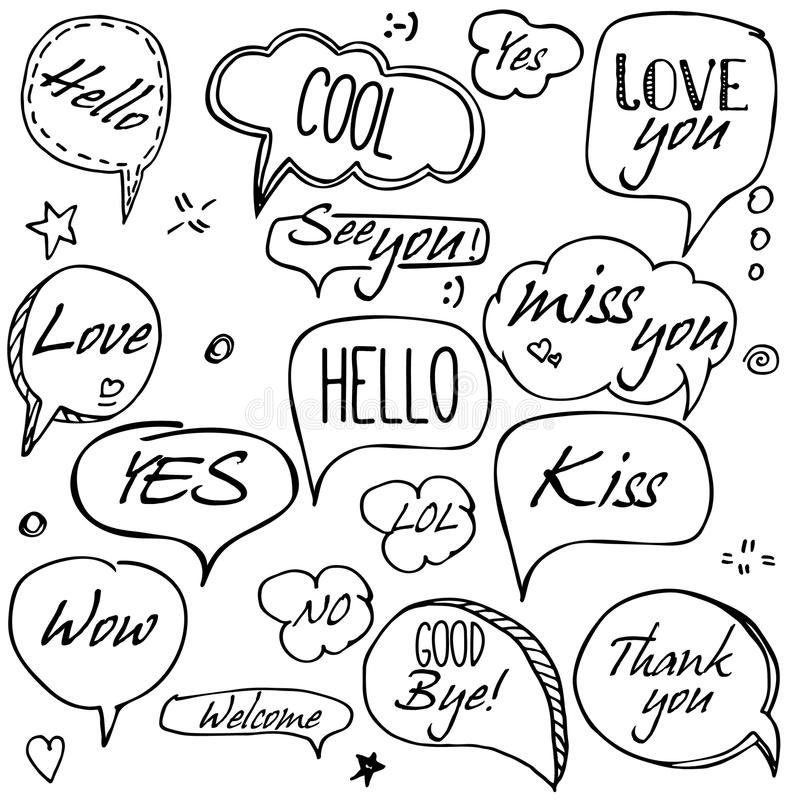 Hello
COOL
Yes
LOVE
you
:-)
See you!
:)
Love
miss
you
HELLO
YES
Kiss
LOL
NO
Wow
GOOD
Bye!
Thank
you
Welcome